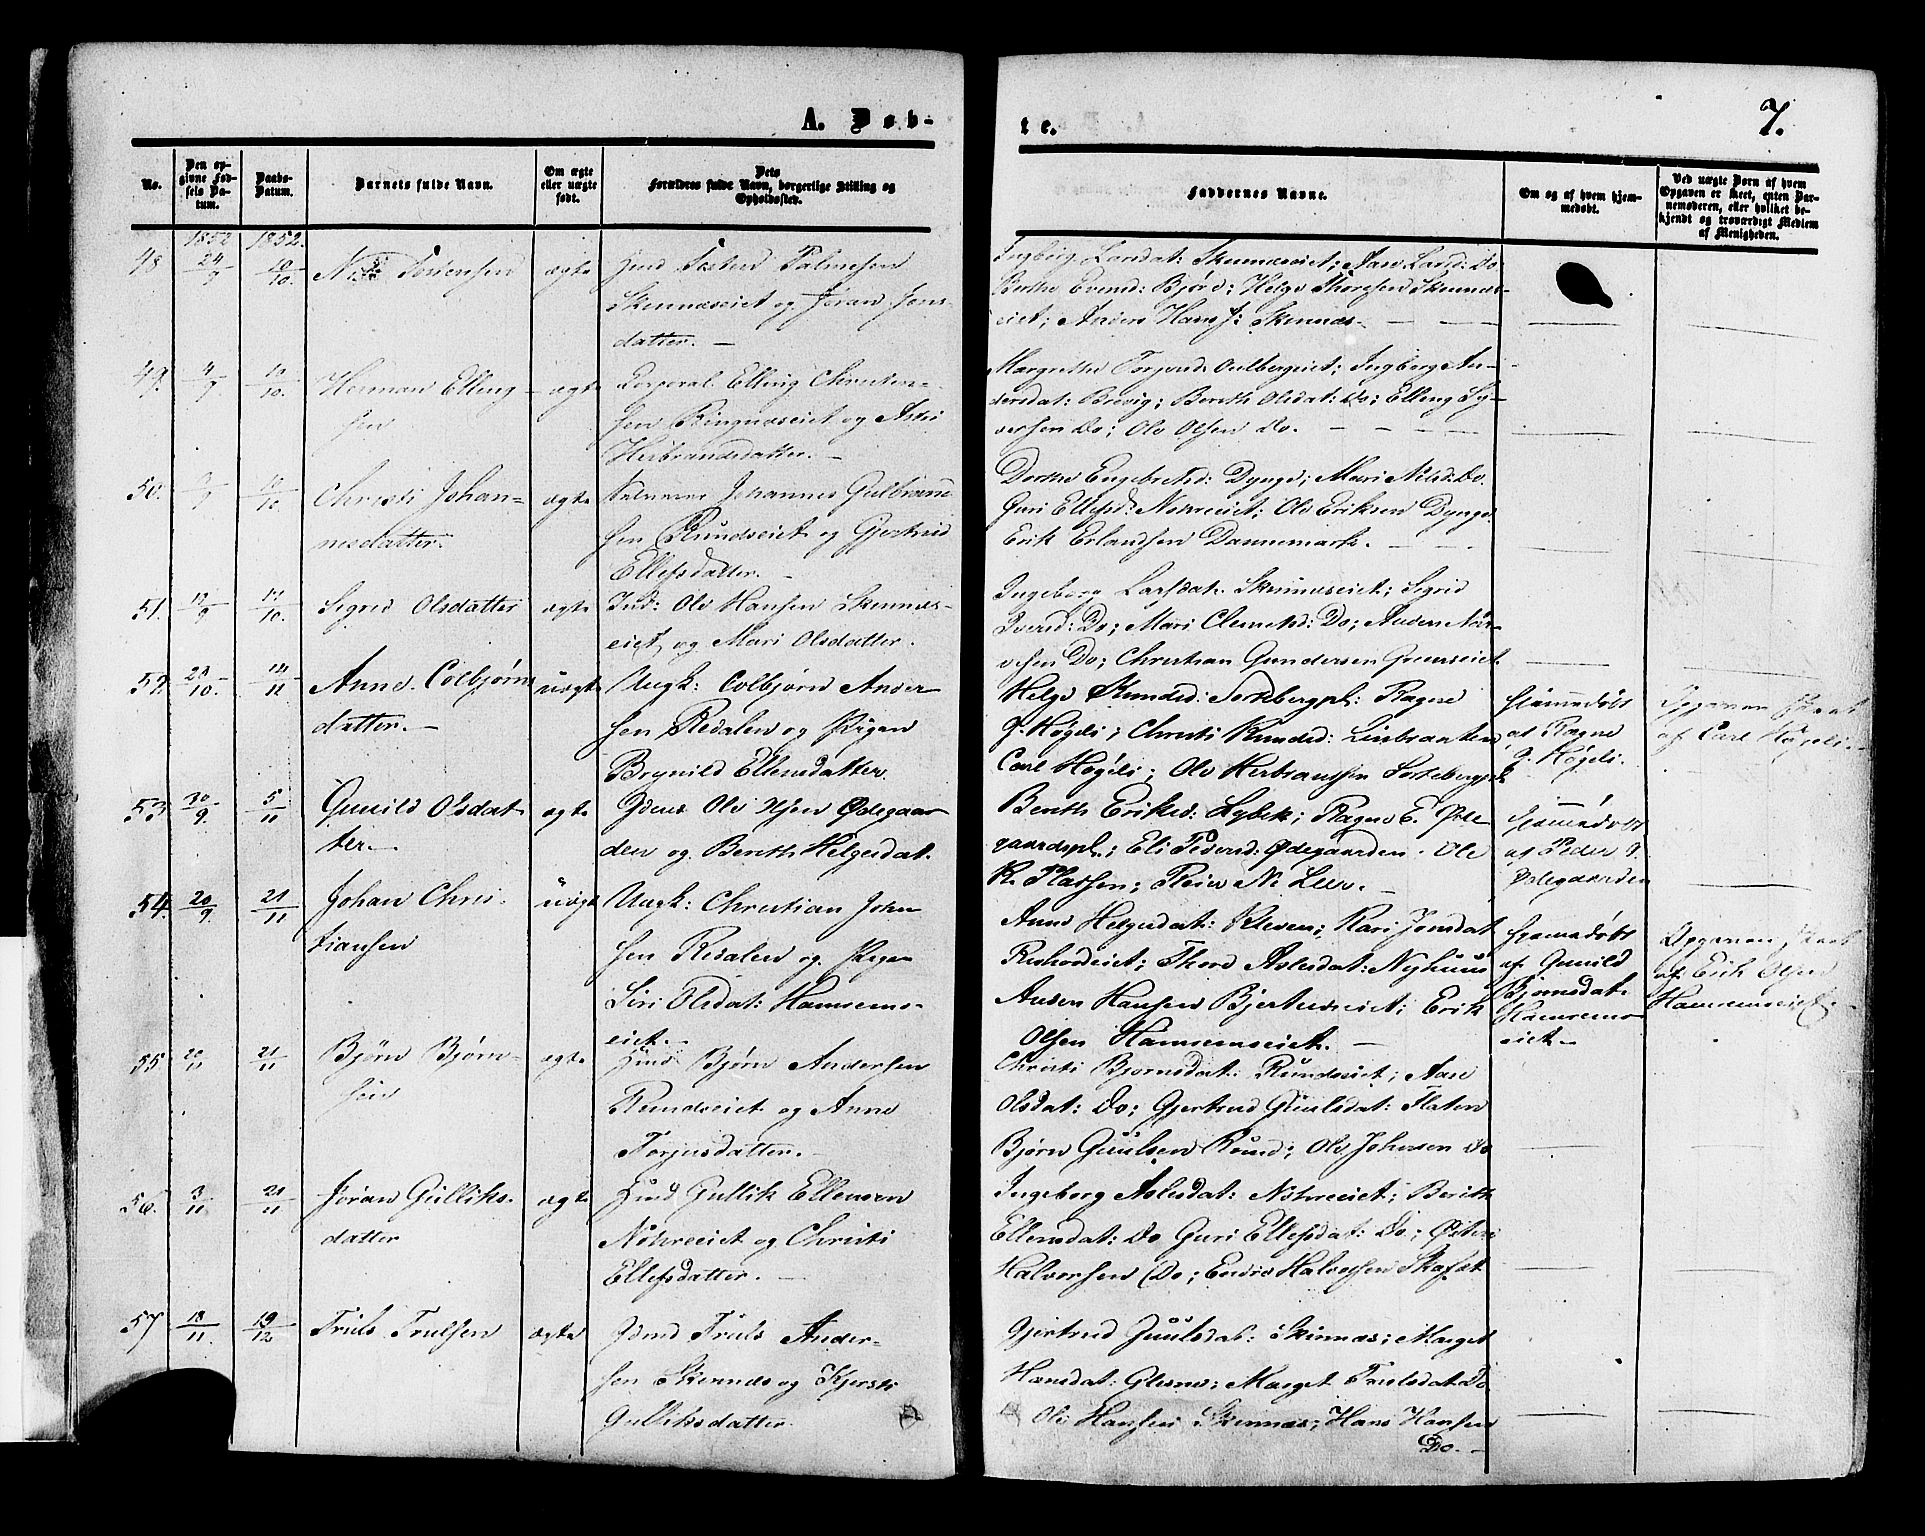 A. Døb-
te.
7.
No.
Den op-
givne Fød-
sels Da-
tum.
Daabs-
Datum.
Barnets fulde Navn.
Om ægte
eller uægte
født.
Dets
Forældres fulde Navn, borgerlige Stilling og
Opholdssted.
Faddernes Navne.
Om og af hvem hjem-
medøbt.
Ved uægte Born af hvem
Opgaven er skeet, enten Bar-
nemoderen, eller hvilket be-
kjendt og troværdigt Medlem
af Menigheden.
1852 1852.
48 24/9 10/10 ægte
Palmesen
Skinnæseiet og Jøran Jons-
datter. —
Ingebirg Larsdat: Skinnæseiet; Aase Larsd: Do
Berthe Evensd: Bjøre; Helge Thoresen Skinnæs-
eiet; Anders Hans f: Skinnæs
49. 4/9 10/10. Herman Elling-
sen
ægte
Corporal Elling Christen-
sen Ringnæseiet og Astri
Herbrandsdatter. —
Margrethe Gulbergeiet; Ingbirg An-
dersdat: Brevig; Berith Olsdat: Do; Elling Sy-
versen Do; Ole Olsen Do.
50. 10/10 Christi Johan-
nesdatter.
ægte
Johannes Gulbrand-
sen Rundseiet og Gjertrud
Ellefsdatter. —
Dorthe Engebretsd: Dynge; Mari Nilsd: Do.
Guri Ellefsd: Nohreeiet; Ole Eriksen Dynge
Erik Erlandsen Dannemark.
51. 12/9 10/10. Sigrid Olsdatter
ægte
Ind: Ole Hansen Skinnæs-
eiet og Mari Olsdatter.
Ingeborg Larsdat. Skinnæseiet; Sigrid
Iversd: Do; Mari Clemetsd: Do; Anders
Do; Christian Gundersen
52. 28/10. 14/11 Anne Colbjørns
datter. —
uægte
Ungk: Colbjørn Ander
sen Redalen og Pigen
Brynild Ellensdatter
Helge Knudsd: Ragne
G. Høgeli; Christi Knudsd:
Carl Høgeli; Ole Herbrandsen
hjemmedøbt
af Ragne
G. Høgeli.
Opgaven skeet
af Carl Høgeli
53 30/9. 5/11 Gunild Olsdat
ter. —
ægte
Ole Olsen Ødegaar
den og Berith Helgesdat.
Berith Eriksd: Lybek; Ragne E. Øde
gaardspl.; Eli Pedersd: Ødegaarden. Ole
K. Plassen;
hjemmedøbt
af Peder G.
Ødegaarden
54. 20/9 21/11 Johan Chris-
tiansen
uægte
Ungk: Christian John
sen Redalen og Pigen
Siri Olsdat: Hamrems-
eiet. —
Anne Helgesdat: Kleven; Kari Jonsdat
Thore Aslesdat: Nyhuus
Anders Hansen Erik
Olsen Hamremseiet. —
hjemmedøbt
af Gunild
Bjørnsdat.
Hamrems-
eiet. —
Opgaven skeet
af Erik Olsen
Hamremseiet
55 20/11 21/11 Bjørn Bjørn-
sen
ægte
Bjørn Andersen
Rundseiet og Anne
Torjusdatter. —
Christi Bjørnsdat: Rundseiet; Aase
Olsdat: Do; Gjertrud Guulsdat: Flaten
Bjørn Guulsen Rund; Ole Johnsen Do
56. 3/11 21/11 Jøran Gulliks-
datter
ægte
Gullik Ellensen
Nohreeiet og Christi
Ellefsdatter. —
Ingeborg Aslesdat: Nohreeiet; Berith
Ellensdat: Do Guri Ellefsdat: Do; Østen
Halvorsen Do; Endre Halvorsen
57 18/11 19/12 Truls Trulsen
ægte
Truls Ander-
sen Skinnæs og Kjersti
Gulliksdatter.
Gjertrud Juulsdat: Skinnæs; Marget
Hansdat: Glesne; Marget Trulsdat Do
Ole Hansen Skinnæs; Hans Hansen
Do. —